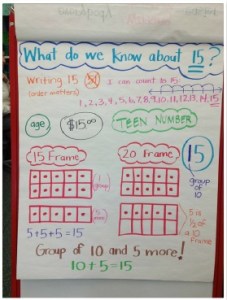 What do we know about 15?
Writing 15
(order matters)
51
I can count to 15
1, 2, 3, 4, 5, 6, 7, 8, 9, 10, 11, 12, 13, 14, 15
age
$15.00
TEEN NUMBER
15 Frame
20 Frame
15
1 group
group of 10
5 is 1/2 of a 10 frame
5+5+5=15
Group of 10 and 5 more!
10+5=15